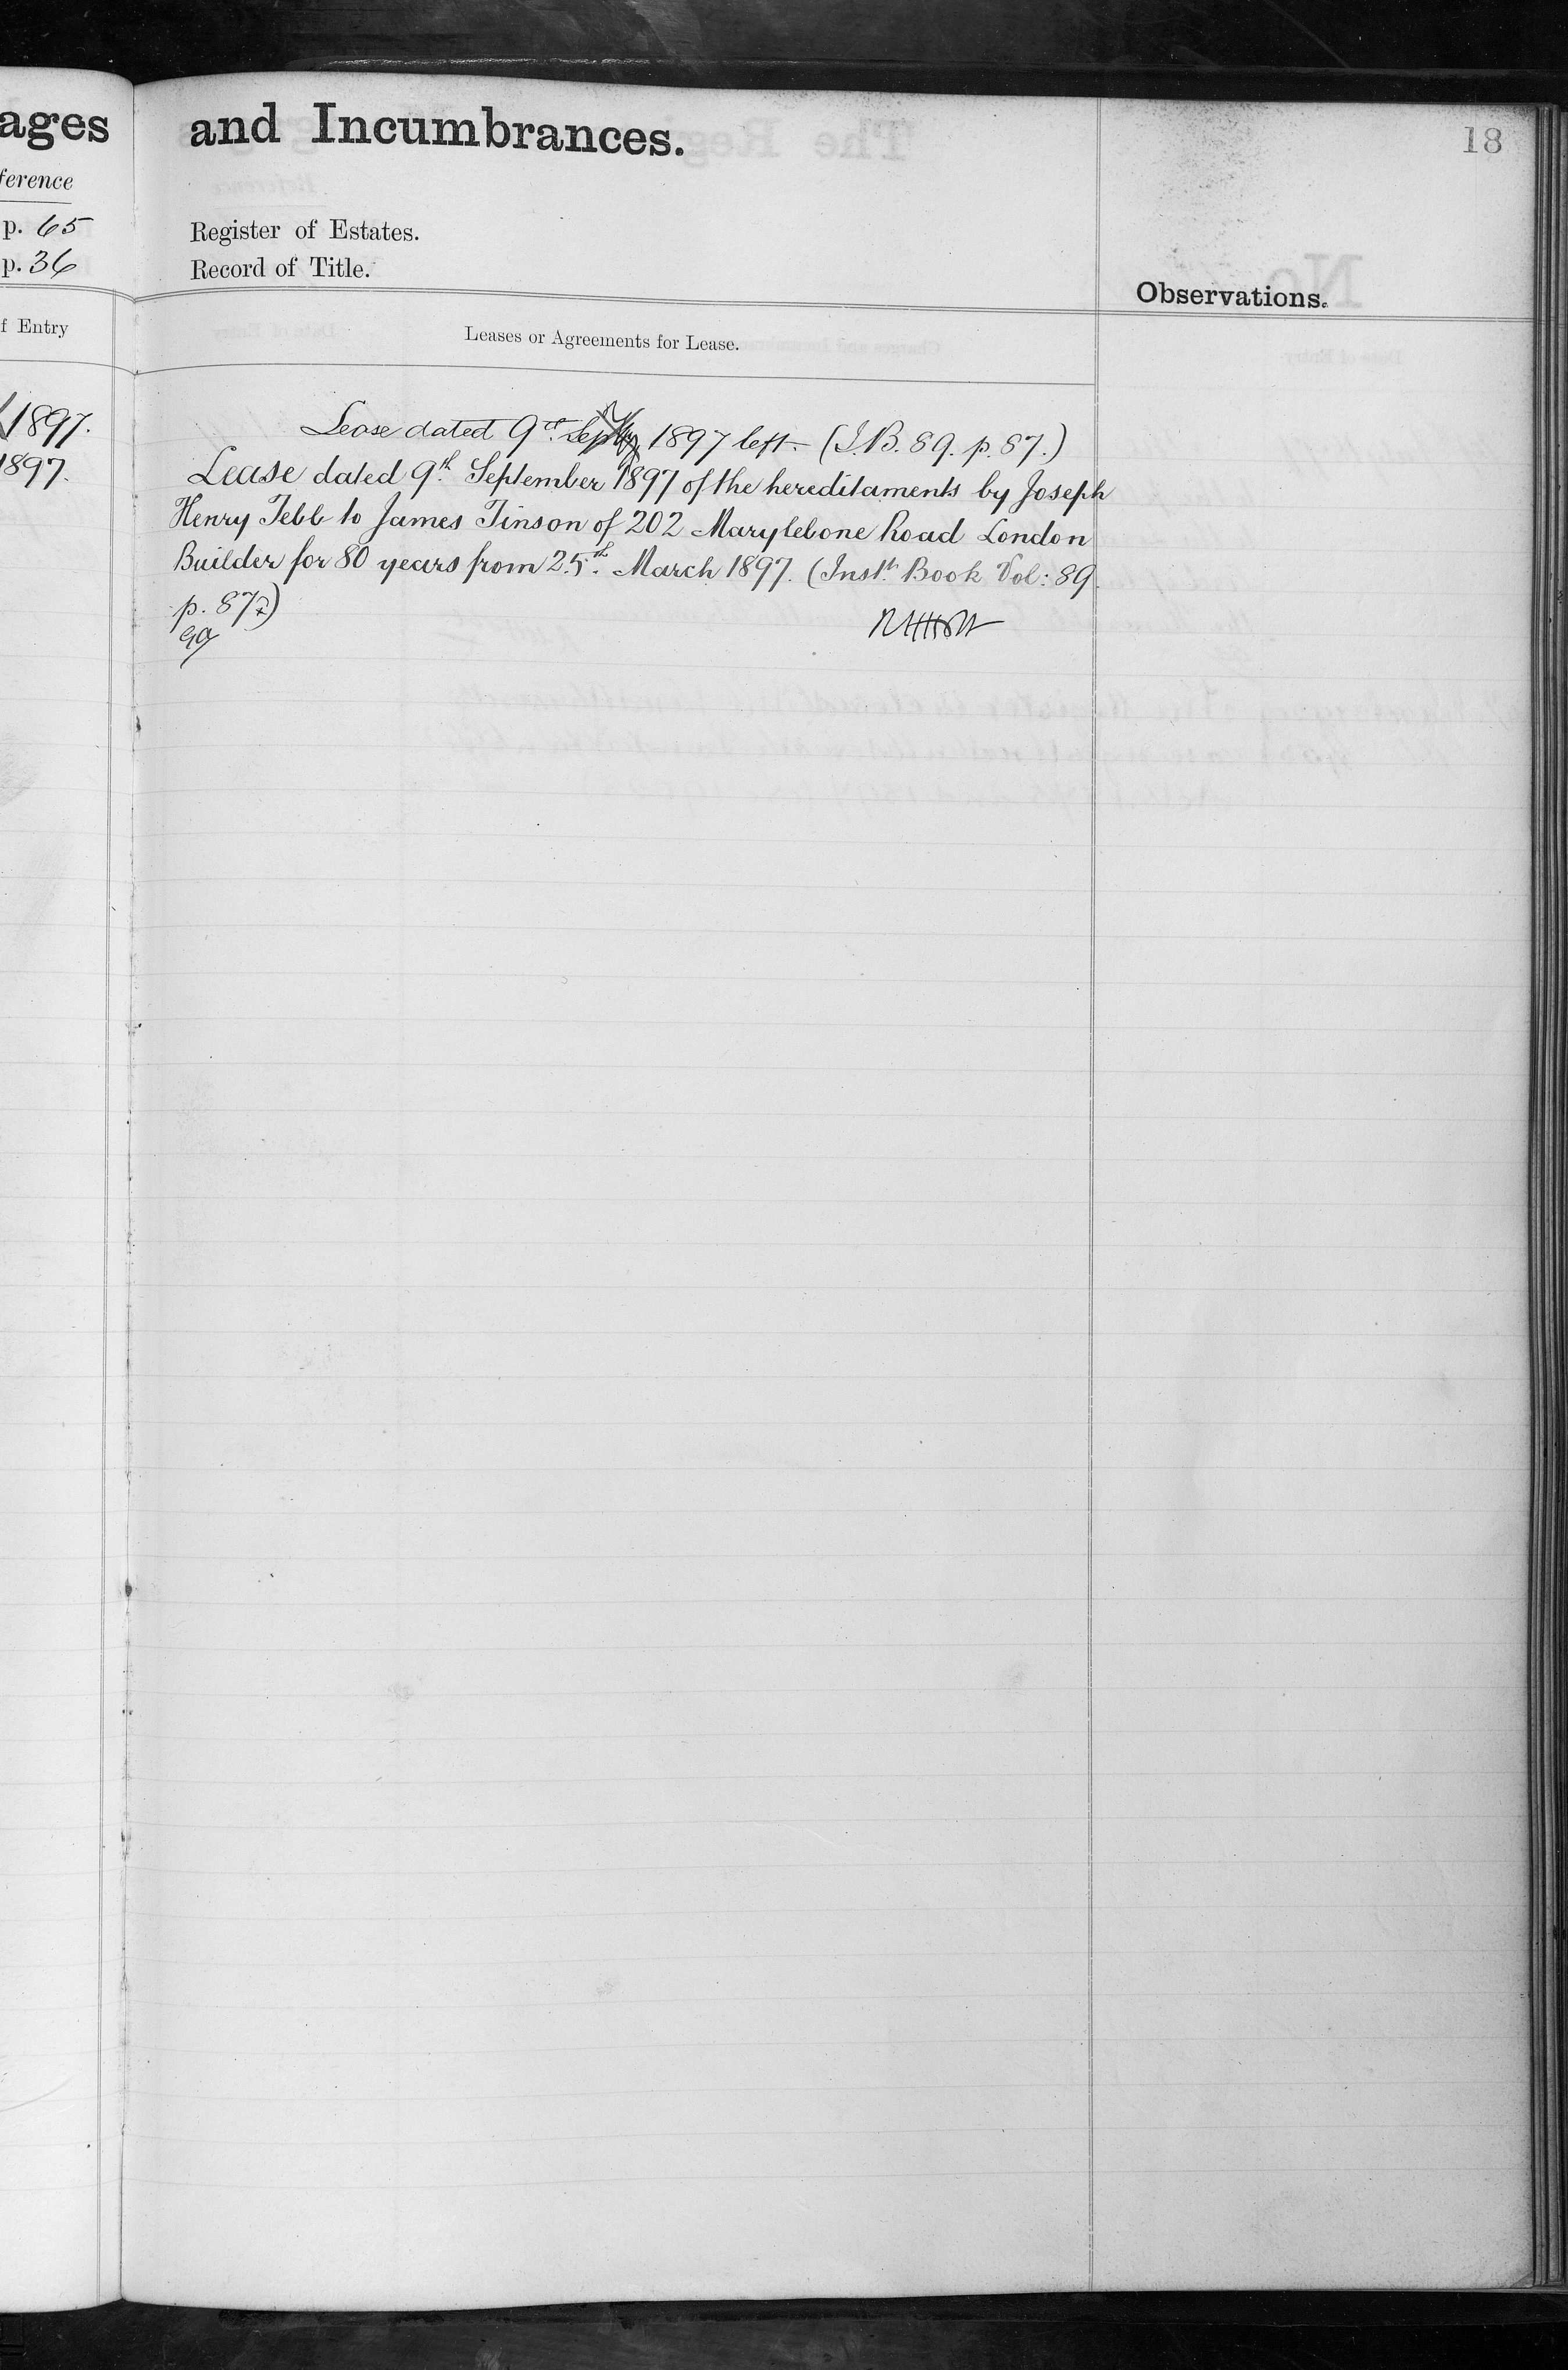 ages
and Incumbrances.
18
ference
p. 65
Register of Estates.
p. 36
Record of Title.
Observations.
f Entry
Leases or Agreements for Lease.
1897.
Lease dated 9th 1897 left. (I.B. 89. p. 87.)
1897.
Lease dated 9th September 1897 of the hereditaments by Joseph
Henry Tebb to James Tinson of 202 Marylebone Road London
Builder for 80 years from 25th March 1897. (Instt Book Vol: 89.
p. 87)